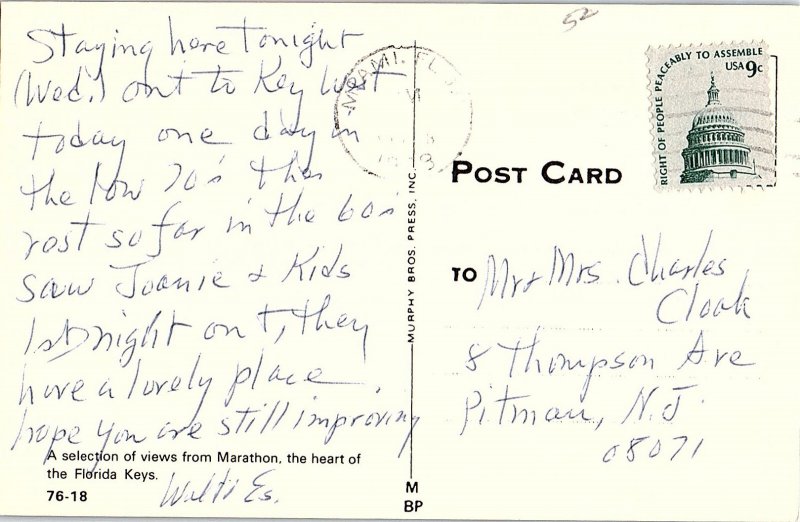 52
Staying here tonight
(Wed.) ont to Key West
today one day in
the low 70's the
rest so far in the 60's
saw Joanie & Kids
1st night ont, they
have a lovely place
hope you are still improving
A selection of views from Marathon, the heart of
the Florida Keys.
76-18
Walt & Es.
MURPHY BROS. PRESS, INC.
M
BP
MIAMI, FL
RIGHT OF PEOPLE PEACEABLY TO ASSEMBLE
USA 9c
POST CARD
TO
Mr & Mrs. Charles
Cloak
8 Thompson Ave
Pitman, N.J.
08071